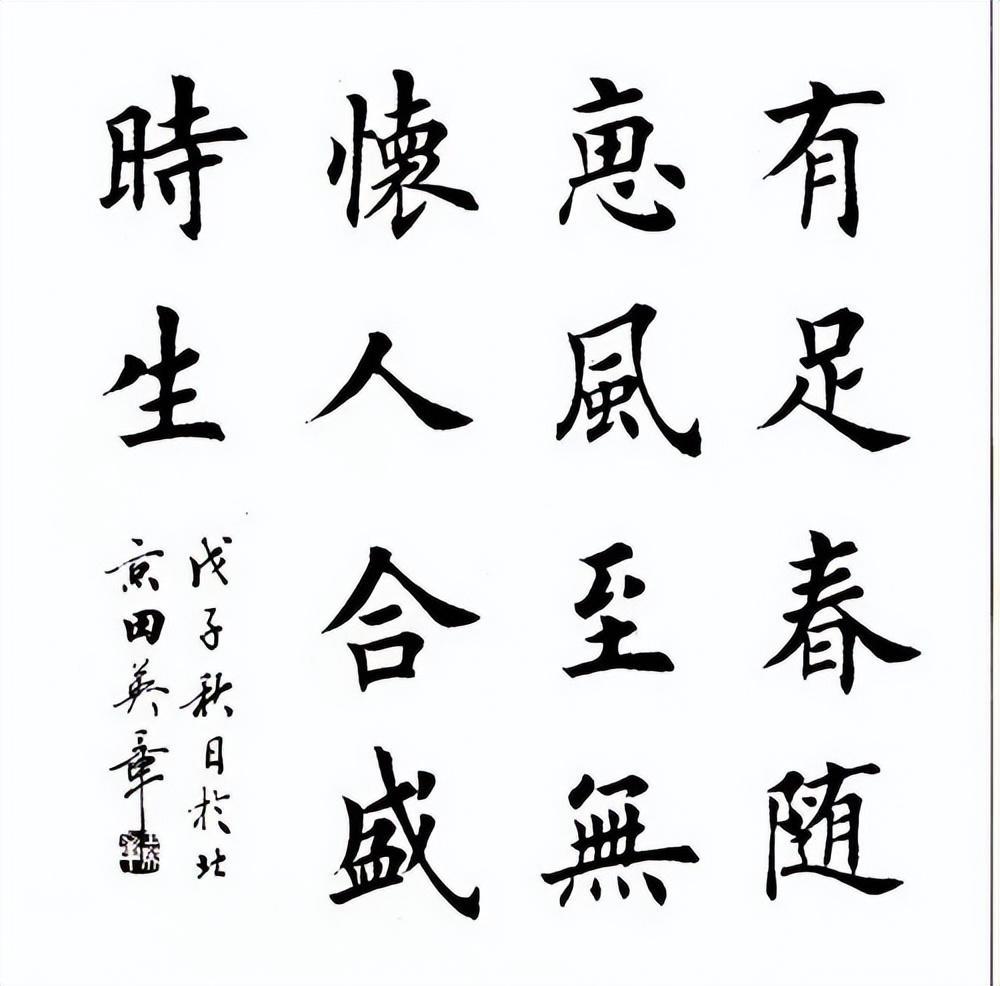 有足春随
恵風至無
懷人合盛
時生
戊子秋日於北
京田英章